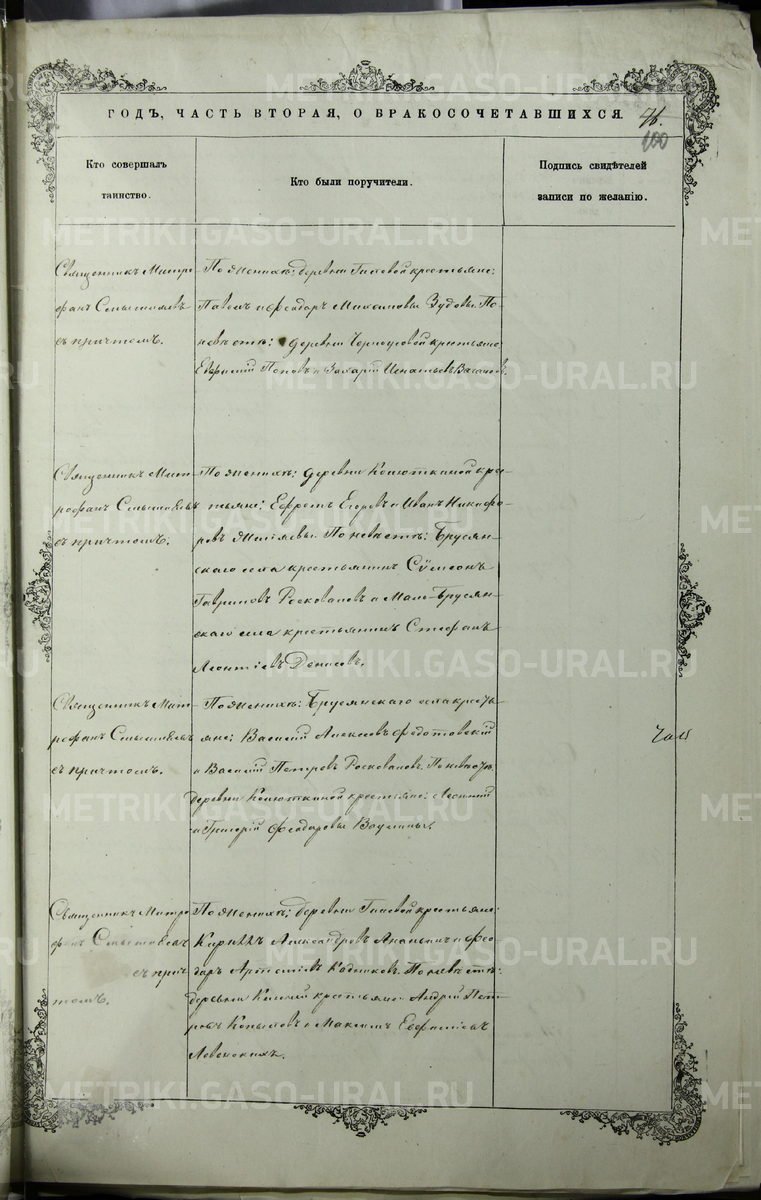 ГОДЪ, ЧАСТЬ ВТОРАЯ, О БРАКОСОЧЕТАВШИХСЯ.
100
Кто совершалъ
таинство.
Кто были поручители.
Подпись свидѣтелей
записи по желанію.
Священникъ Митро-
фанъ Смышляевъ
съ причтомъ.
По женихѣ: деревни крестьяне:
Павелъ и Феодоръ Максимовы Зудовы. По
невѣстѣ: деревни Черноусовой крестьяне
Евфимій Поповъ и Захарій Игнатьевъ
Священникъ Мит-
рофанъ Смышляевъ
съ причтомъ.
По женихѣ: деревни Колюткиной кре-
стьяне: Ефремъ Егоровъ и Иванъ Никифо-
ровъ По невѣстѣ: Брусян-
скаго села крестьянинъ Сѵмеонъ
Гавриловъ и Мало-Брусян-
скаго села крестьянинъ Стефанъ
Леонтіевъ Денисовъ.
Священникъ Мит-
рофанъ Смышляевъ
съ причтомъ.
По женихѣ: Брусянскаго села кресть-
яне: Василій Алексѣевъ Федотовскій
и Василій Петровъ По невѣстѣ
деревни Колюткиной крестьяне:
и Григорій Феодоровы Ваулины.
Священникъ Митро-
фанъ Смышляевъ
съ прич-
томъ.
По женихѣ: деревни крестьяне:
Кириллъ Александровъ и Фео-
доръ Артеміевъ Кадниковъ. По невѣстѣ:
деревни крестьяне Андрей Пет-
ровъ Копыловъ и Максимъ Евфиміевъ
METRIKI.GASO-URAL.RU